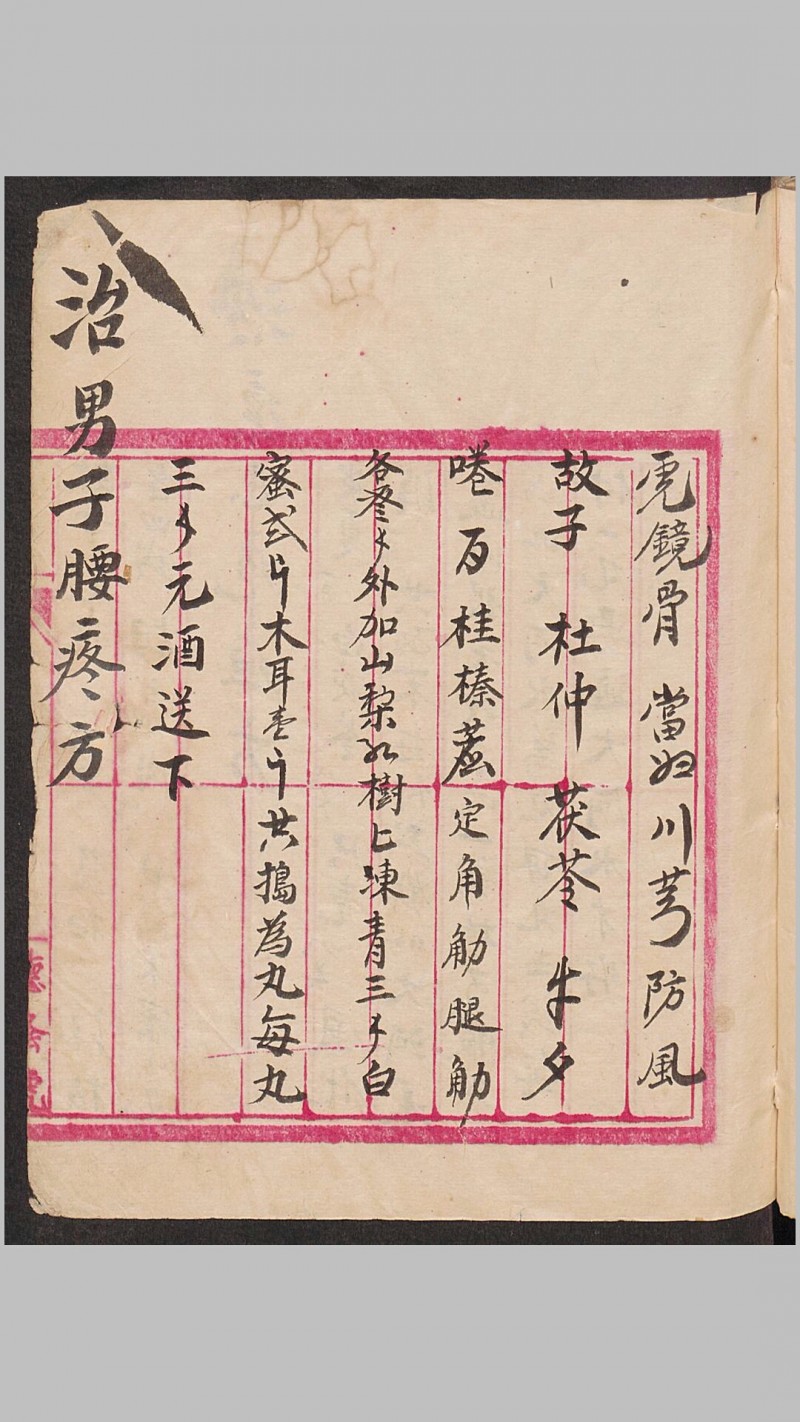 虎鏡骨 當归川芎防風
故子 杜仲 茯苓 牛夕
官桂榛蔴定角觔腿觔
各叁
外加山梨红樹上凍青三
白
蜜弍斤木耳壹斤共搗為丸每丸
三
元酒送下
治男子腰疼方